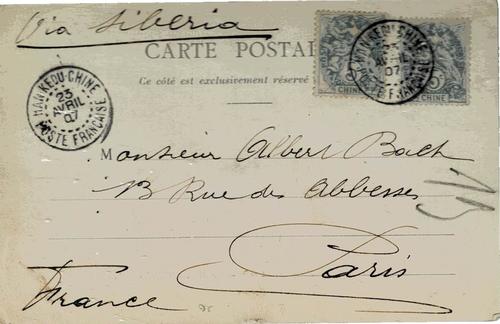 Via Siberia
CARTE POSTALE
Ce côté est exclusivement réservé
HAN-KEOU-CHINE
23
AVRIL
07
POSTE FRANÇAISE
HAN-KEOU-CHINE
23
AVRIL
07
POSTE FRANÇAISE
5c
CHINE
CHINE
Monsieur Albert Bach
13 Rue des Abbesses
Paris
France